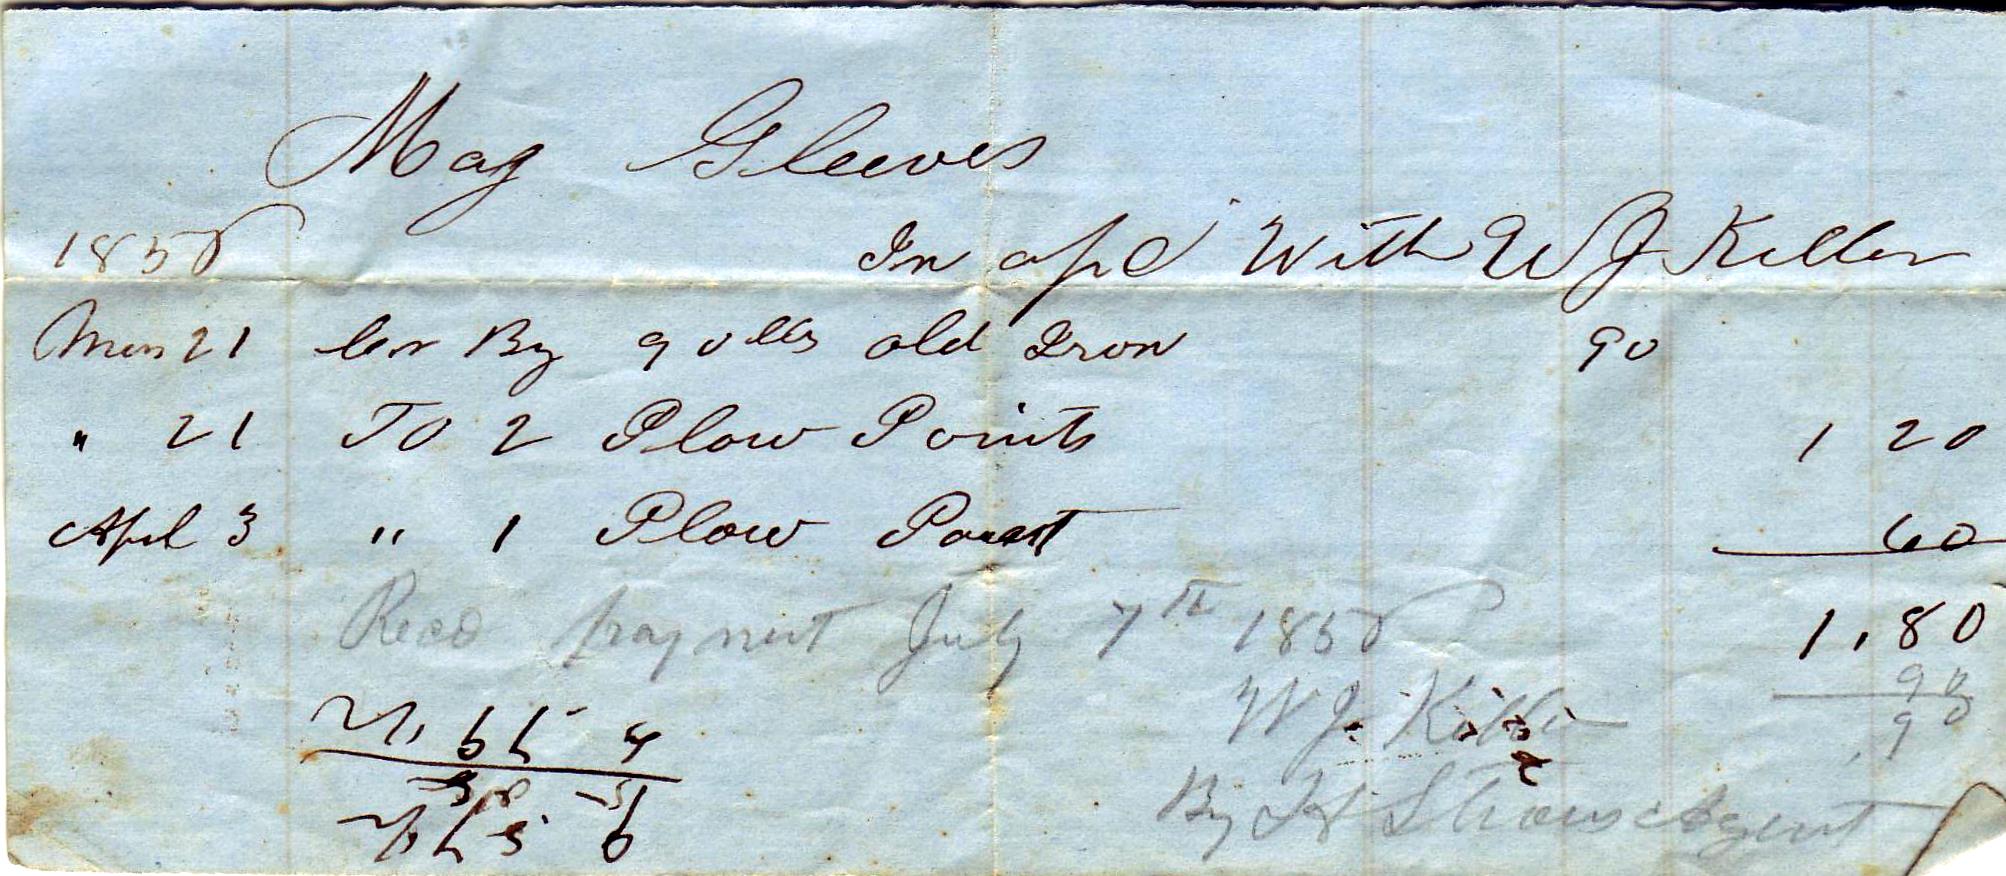 May Gleeves
1858 In apc With W J Keller
21 Cr By 90 lbs old Iron 90
" 21 To 2 Plow Points 1 20
Aprl 3 " 1 Plow Point 60
Recd payment July 7th 1858 1.80
W J Keller 90
.90
By H Agent